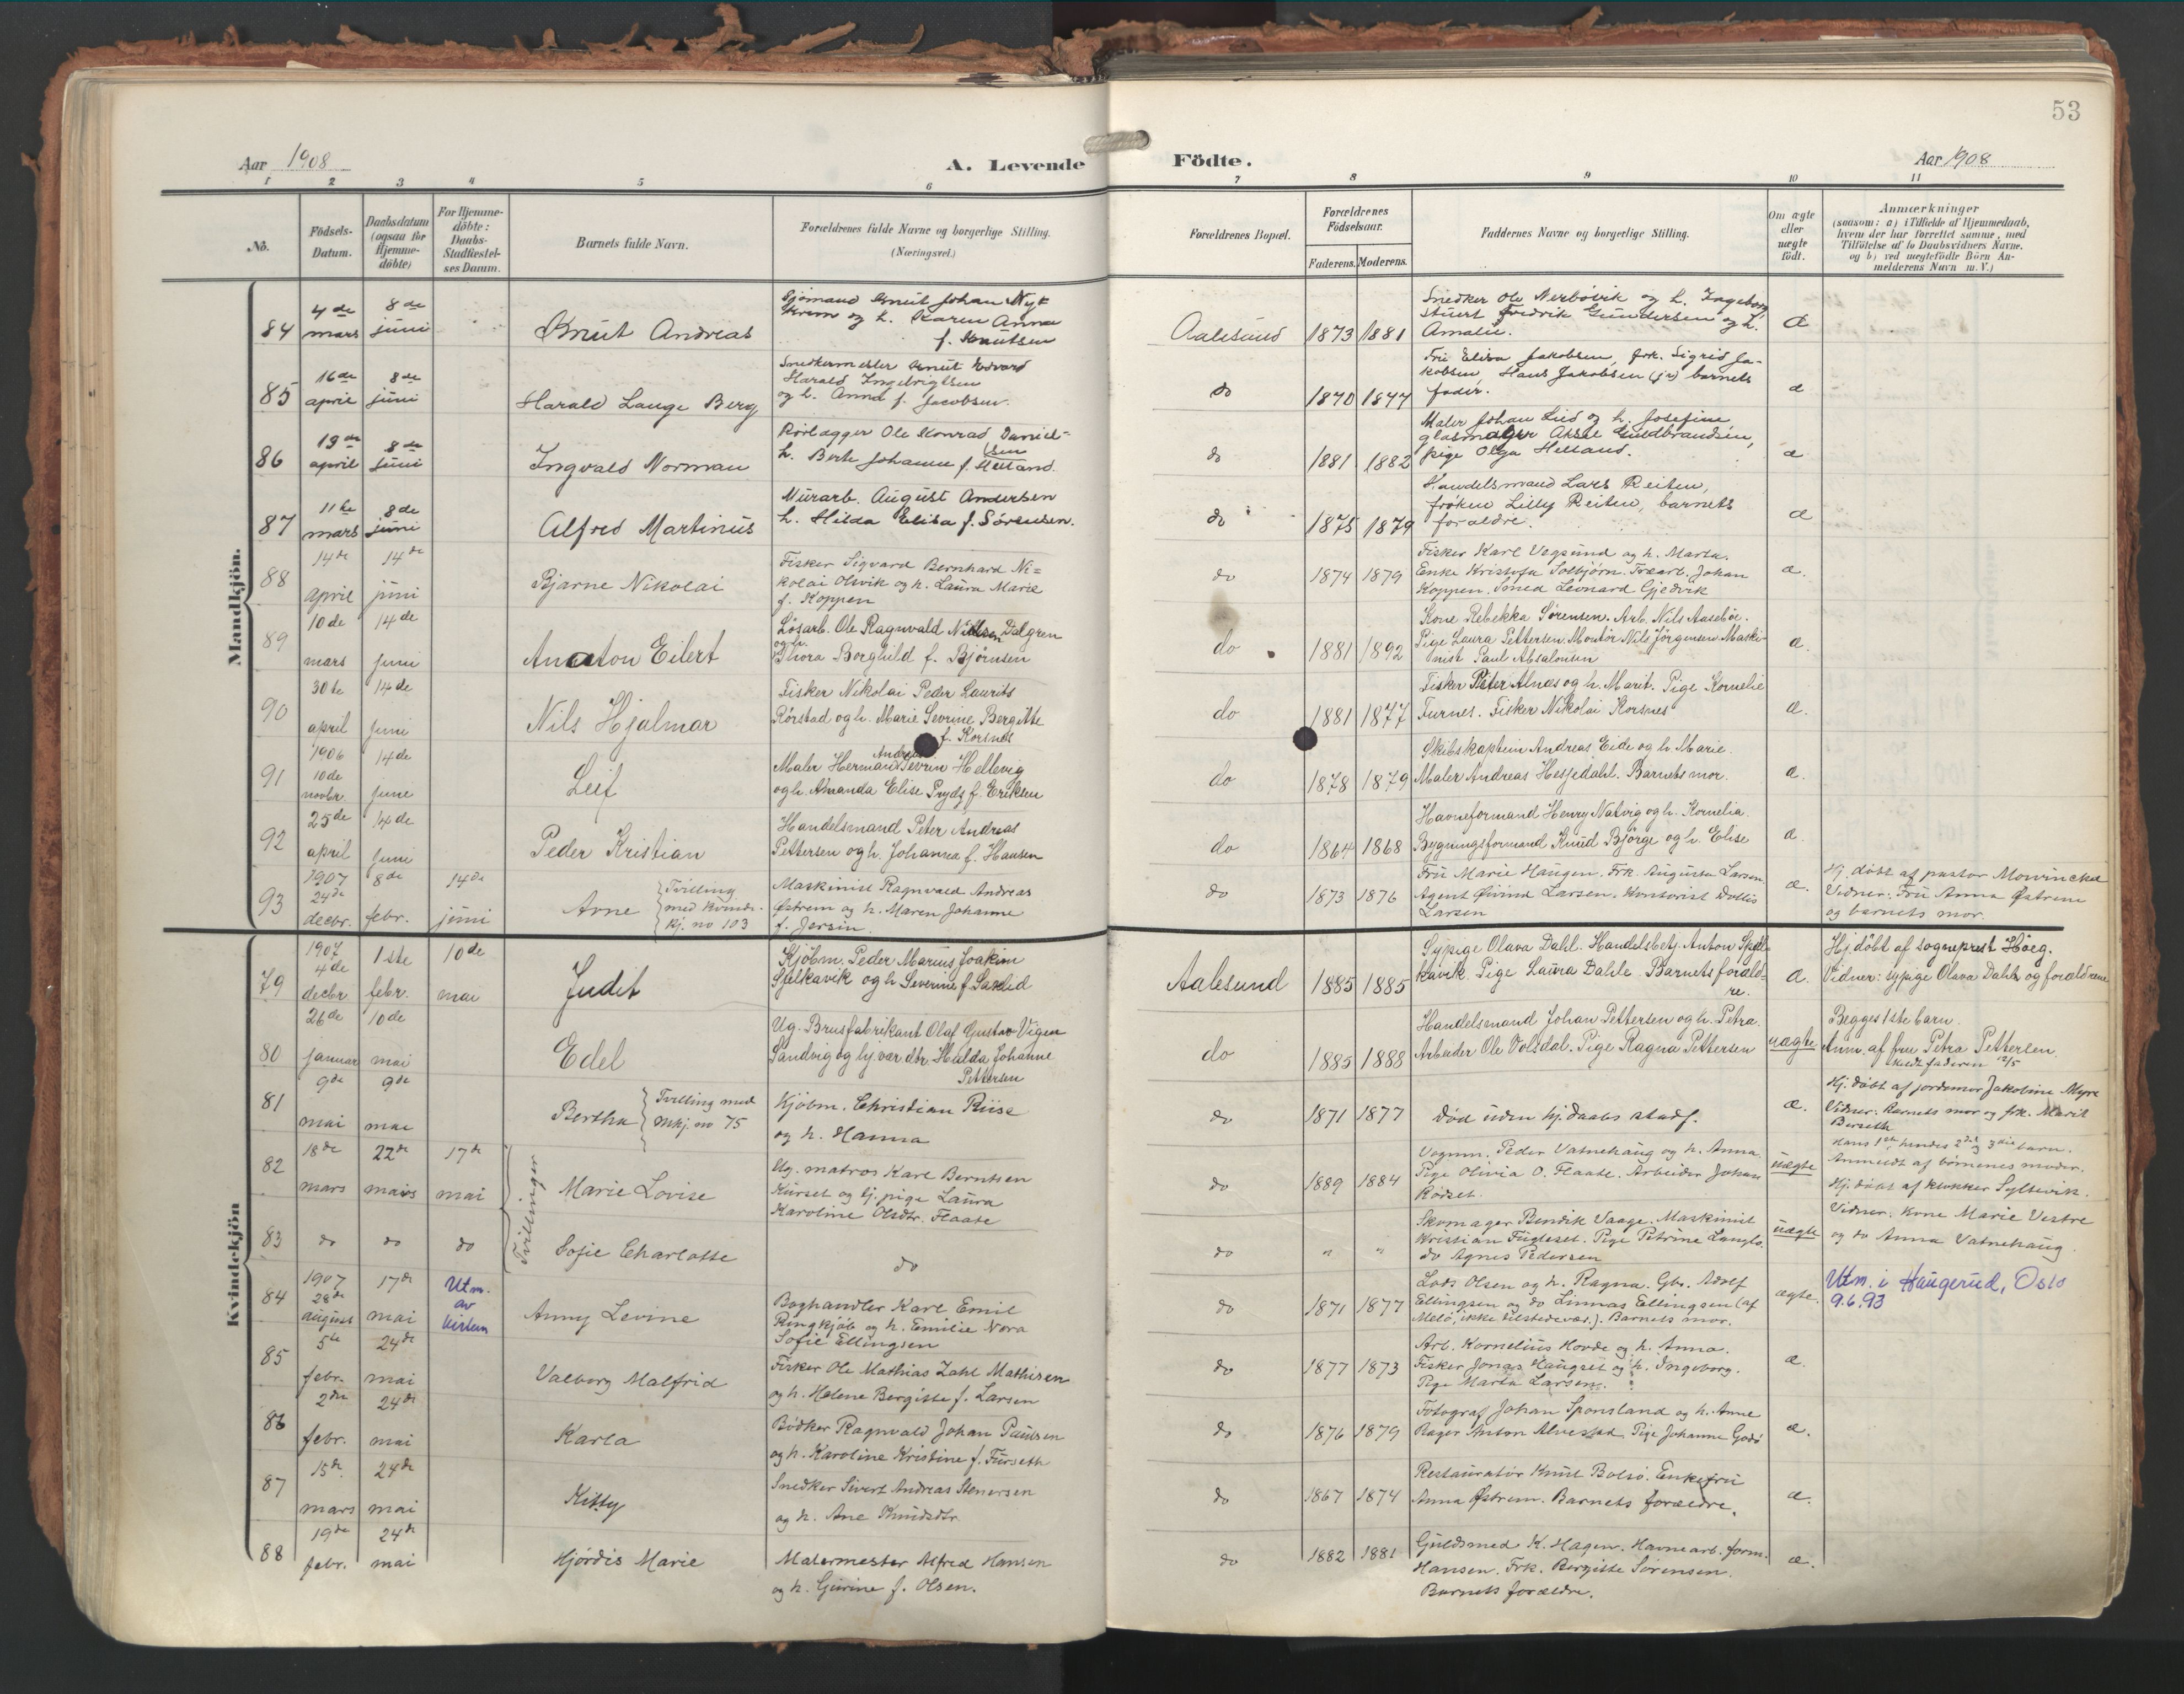 53
Aar 1908
A. Levende
Födte.
Aar 1908
1 2 3 4 5 6 7 8 9 10 11
No.
Födsels-
Datum.
Daabsdatum
(ogsaa for
Hjemme-
döbte)
For Hjemme-
döbte:
Daabs-
Stadfæstel-
ses Datum.
Barnets fulde Navn.
Forældrenes fulde Navne og borgerlige Stilling.
(Næringsvei.)
Forældrenes Bopæl.
Forældrenes
Födselsaar.
Faderens. Moderens.
Faddernes Navne og borgerlige Stilling.
Om ægte
eller
uægte
födt.
Anmærkninger
(saasom: a) i Tilfælde af Hjemmedaab,
hvem der har forrettet samme, med
Tilföielse af to Daabsvidners Navne.
og b) ved uægtefödte Börn An-
melderens Navn m. V.)
Mandkjön.
84 4de mars 8de juni
Knut Andreas
Sjömand Knut Johan Myk
og h. Karen Anna
f. Knutsen
Aalesund 1873 1881
Snedker Ole Nerbövik og h. Ingeborg
Stuert Fredrik Gundersen og h.
Amalie.
æ
85 16de april 8de juni
Harald Lange Berg
Snedkermester Knut Edvard
Harald Ingebrigtsen
og h. Anna f. Jacobsen.
do 1870 1877
Fru Elisa Jakobsen, frk. Sigrid Ja-
kobsen Hans Jakobsen (jr) barnets
fader.
æ
86 19de april 8de juni
Ingvald Norman
Rörlægger Ole Konrad Daniel-
sen
h. Berte Johanne f. Helland.
do 1881 1882
Maler Johan Lied og h. Josefine
glasmager Aksel Guldbrandsen,
pige Olga Helland.
æ
87 11te mars 8de juni
Alfred Martinus
Murarb. August Andersen
h. Hilda Elisa f. Sörensen.
do 1875 1879
Handelsmand Lars Reiten,
fröken Lilly Reiten, barnets
forældre.
æ
88 14de april 14de juni
Bjarne Nikolai
Fisker Sigvard Bernhard Ni-
kolai Olsvik og h. Laura Marie
f. Koppen
do 1874 1879
Fisker Karl Vegsund og h. Marta.
Enke Kristofa Solbjörn. Træarb. Johan
Koppen. Smed Leonard Gjedvik
æ.
89 10de mars 14de juni
Anton Eilert
Lösarb. Ole Ragnvald Nilsen Dalgren
og h.
Thora Borghild f. Björnsen
do 1881 1892
Kone Rebekka Sörensen. Arb. Nils Aaseböe.
Pige Laura Pettersen. Montör Nils Jörgensen Maski-
nist Paul Absalonsen
æ.
90 30te april 14de juni
Nils Hjalmar
Fisker Nikolai Peder Laurits
Rörstad og h. Marie Sevrine Bergitte
f. Korsnes
do 1881 1877
Fisker Peter Alnæs og h. Marit. Pige Kornelie
Furnes. Fisker Nikolai Korsnes
æ.
91 1906 10de novbr. 14de june
Leif
Andreas
Maler Herman Sevrin Hellevig
og h. Amanda Elise Prydz f. Eriksen
do 1878 1879
Skibskaptein Andreas Eide og h Marie.
Maler Andreas Hessedahl. Barnets mor.
æ.
92 25de april 14de juni
Peder Kristian
Handelsmand Peter Andreas
Pettersen og h. Johanna f. Hansen
do 1864 1868
Havneformand Henry Natvig og h. Kornelia.
Bygningsformand Knud Björge og h. Elise
æ.
93 1907 24de decbr. 8de febr. 14de juni
Arne
Tvilling
med kvinde-
kj. no 103
Maskinist Ragnvald Andreas
Östrem og h. Maren Johanne
f. Jersin.
do 1873 1876
Fru Marie Haugen. Frk. Augusta Larsen
Agent Öivind Larsen. Kontorist
Larsen
æ.
Hj. döbt af pastor Mowinckel
Vidner: Fru Anna Östrem
og barnets mor.
Kvindekjön
79 1907 4de decbr 1ste febr. 10de mai
Judit
Kjöbm. Peder Marius Joakim
Spelkavik og h Severine f.
Aalesund 1885 1885
Sypige Olava Dahl. Handelsbetj. Anton Spel-
kavik. Pige Laura Dahle. Barnets foræld-
re.
æ.
Hj. döbt af sogneprest Höeg.
Vidner: sypige Olava Dahle og forældrene
80 26de januar 10de mai
Edel
Ug. Brusfabrikant Olaf Gustav Vigen
Sandvig og hj. var. dtr. Hulda Johanne
Pettersen
do 1885 1888
Handelsmand Johan Pettersen og h. Petra.
Arbeider Ole Volsdal. Pige Ragna Pettersen
uægte
Begges 1ste barn.
Anm. af fru Petra Pettersen.
faderen 12/5
81 9de mai 9de mai
Bertha
Tvilling med
Mkj. no 75
Kjöbm. Christian Riise
og h. Hanna
do 1871 1877
död uden hj. daabs stadf.
æ.
Hj. döbt af jordemor Jakobine Myre
Vidner: Barnets mor og frk. Marit
Berseth
82 18de mars 22de mars 17de mai
Tvillinger
Marie Lovise
Ug. matros Karl Berntsen
Kurset og tj. pige Laura
Karoline Olsdtr. Flaate
do 1889 1884
Vognm. Peder Vatnehaug og h. Anna.
Pige Olivia O. Flaate. Arbeider Johan
Rödset.
uægte
Hans 1ste hendes 2det og 3die barn.
Anmeldt af börnenes moder.
Hj. döbt af klokker Syltevik.
83 do do do
Sofie Charlotte
do
do " "
Skomager Bendik Vaage. Maskinist
Kristian Fugleset. Pige Petrine Langlo.
do Agnes Pedersen
uægte
Vidner: Kone Marie Vestre
og do Anna Vatnehaug.
84 1907 28de august 17de mai
Utm.
av
kirken
Anny Levine
Boghandler Karl Emil
Ringkjöb og h. Emilie Nora
Sofie Ellingsen
do 1871 1877
Lods Olsen og h. Ragna. Gbr. Adolf
Ellingsen og do Linnas Ellingsen (af
Melö, ikke tilstedevær.). Barnets mor.
ægte.
Utm. i Haugerud, Oslo
9.6.93
85 5te febr. 24de mai
Valborg Malfrid
Fisker Ole Mathias Zahl Mathisen
og h. Helene Bergitte f. Larsen
do 1877 1873
Arb. Kornelius Hovde og h. Anna.
Fisker Jonas Haugset og h. Ingeborg.
Pige Marta Larsen.
æ.
86 2den febr. 24de mai
Karla
Bödker Ragnvald Johan Paulsen
og h. Karoline Kristine f. Furseth
do 1876 1879
Fotograf Johan Sponsland og h. Anne
Bager Anton Alvestad Pige Johanne Godö
æ.
87 15de mars 24de mai
Kitty
Snedker Sivert Andreas Stenersen
og h. Ane Knudsdtr.
do 1867 1874
Restauratör Knut Bolsö. Enkefru
Anna Östrem. Barnets forældre.
æ.
88 19de febr. 24de mai
Hjördis Marie
Malermester Alfred Hansen
og h. Gurine f. Olsen.
do 1882 1881
Guldsmed K. Hagen. Havnearb. form.
Hansen. Frk. Bergitte Sörensen.
Barnets forældre.
æ.